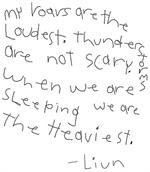 my roars are the
Loudest. thunderstorms
are not scary.
when we are
sleeping we are
the heaviest.
-Liun